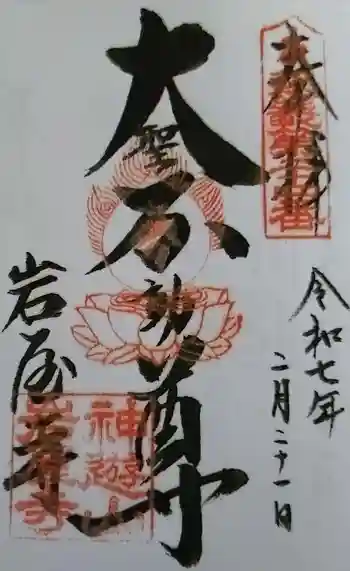 奉拝
令和七年
二月二十一日
大聖不動尊
岩屋寺
神遊山
岩屋寺